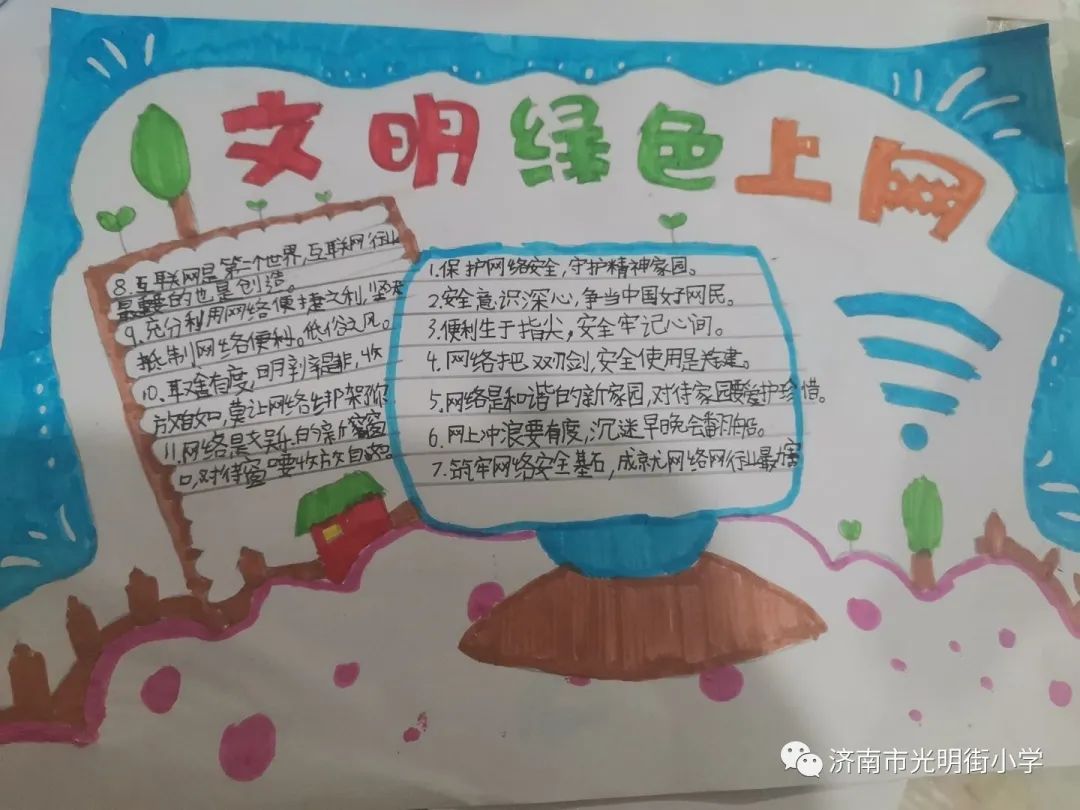 文明绿色上网
1.保护网络安全，守护精神家园。
2.安全意识深心，争当中国好网民。
3.便利生于指尖，安全牢记心间。
4.网络把双刃剑，安全使用是关建。
5.网络是和谐的新家园，对待家园要爱护珍惜。
6.网上冲浪要有度，沉迷早晚会翻船。
7.筑牢网络安全基石，成就网络网行业最
8.互联网是第二个世界，互联网行业
最重要的也是创造。
9.充分利用网络便捷之利，坚决
抵制网络便利。低俗之风。
10.取舍有度，明判是非，收
放自如，莫让网络绑架你
11.网络是崭新的新窗
口，对待窗口要收放自如
济南市光明街小学